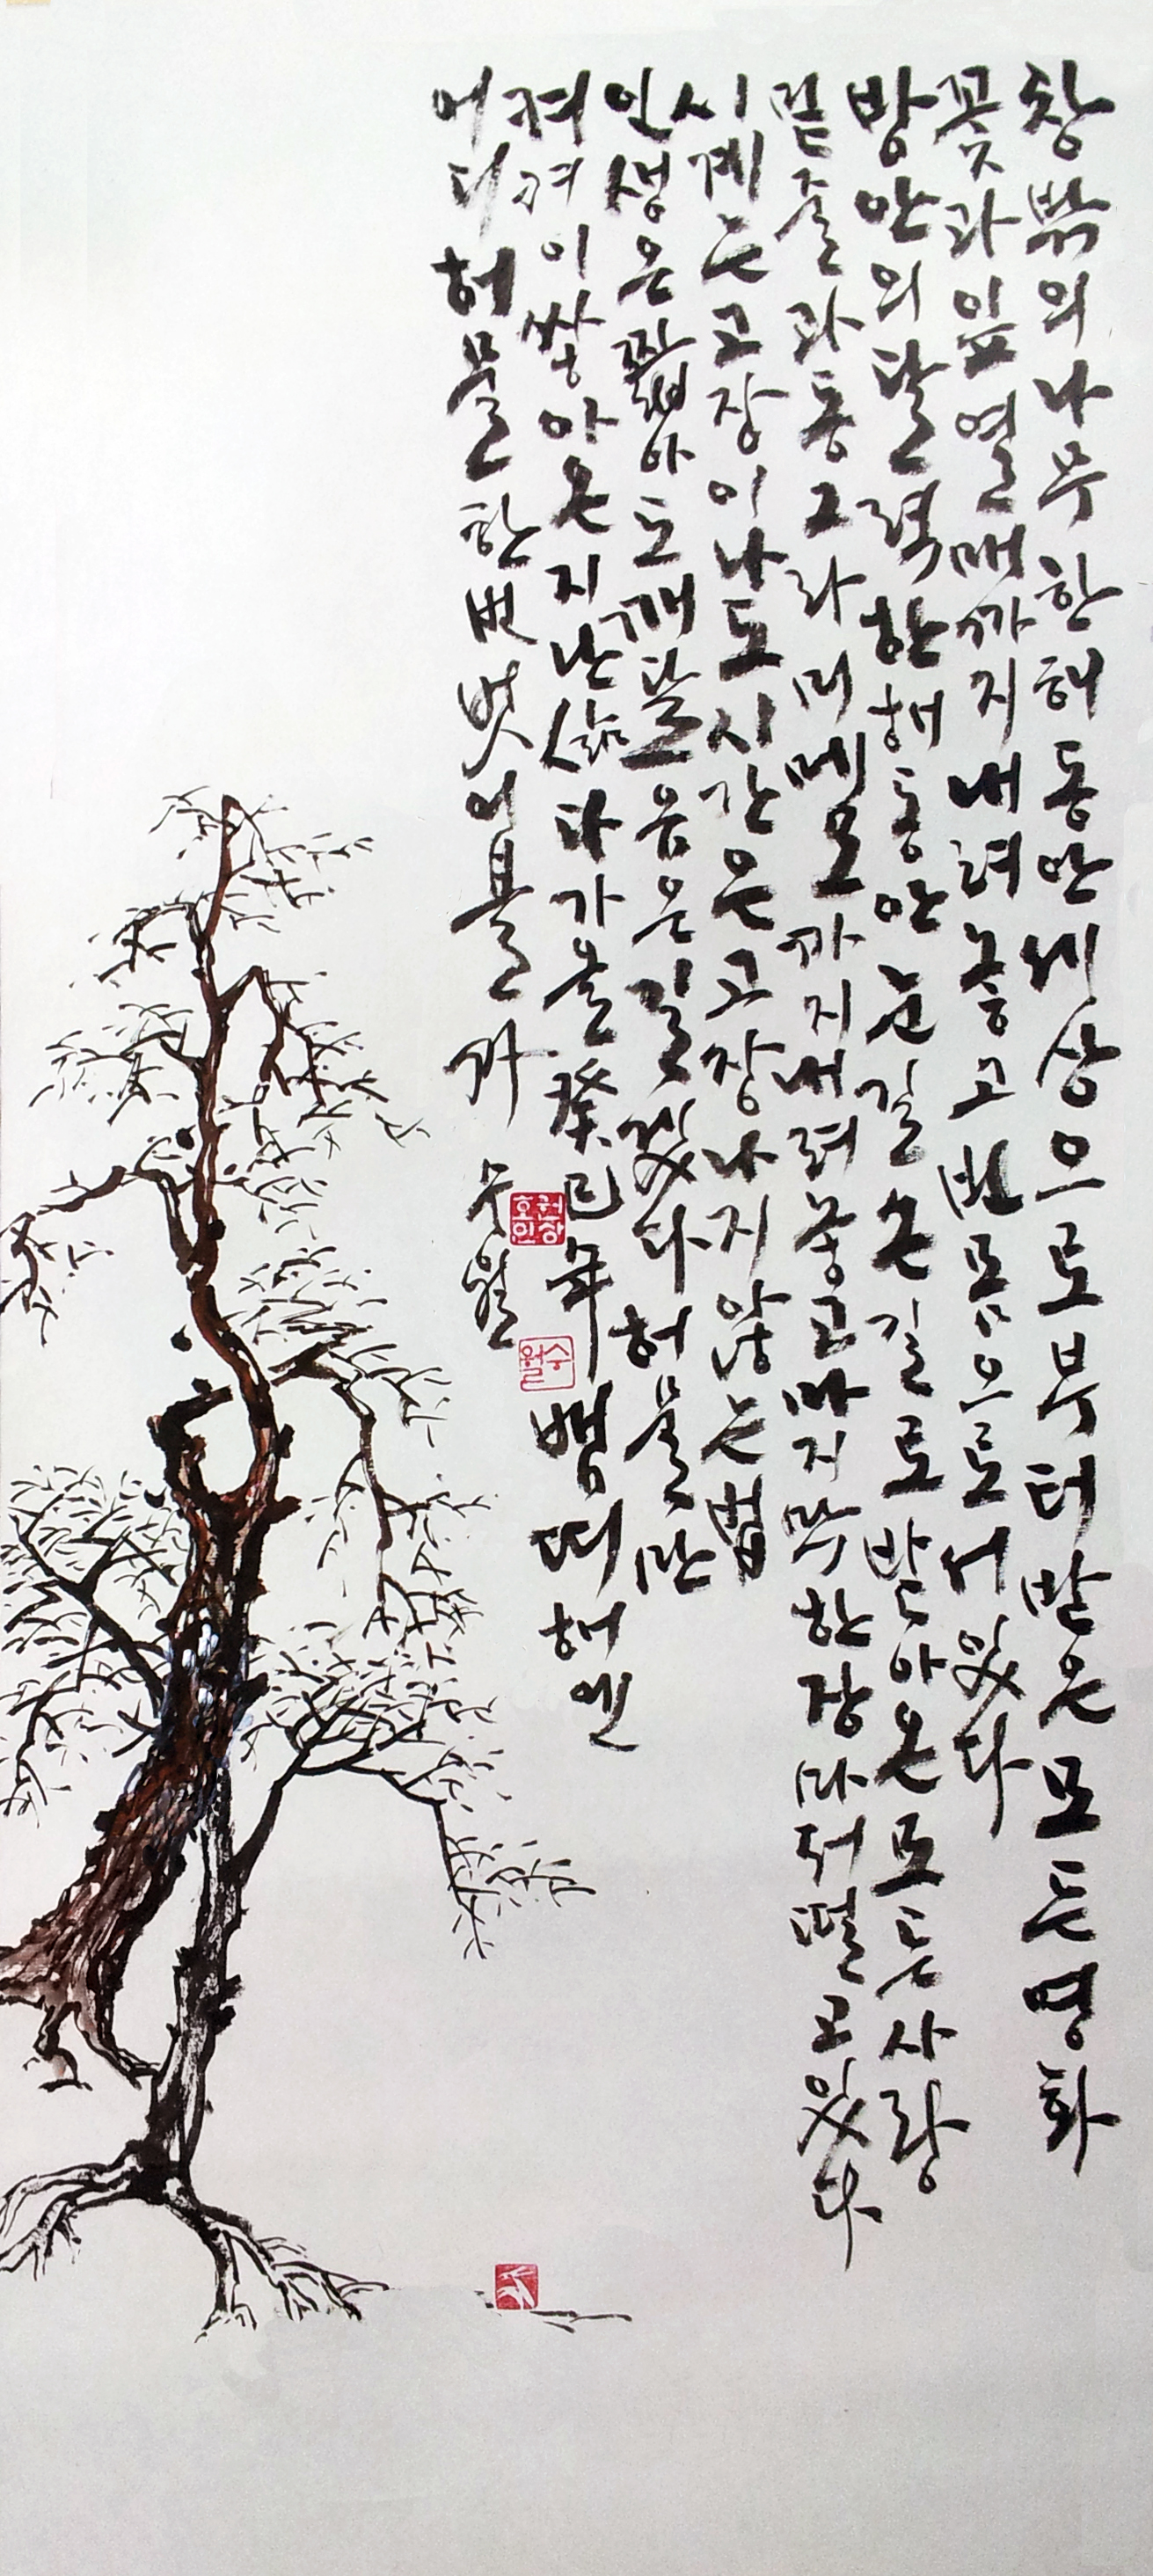 창 밖의 나무 한해동안 세상으로부터 받은 모든 명화
꽃과 잎 열매까지 내려놓고 빈 몸으로 서 있다
방안의 달력 한해동안 눈길 손길로 받아온 모든 사랑
밑줄과 동그라미 메모까지 내려놓고 마지막 한장마저 떨고있다
시계는 고장이 나도 시간은 고장나지 않는 법
인생은 짧아도 깨달음은 길겠다 허물만
켜켜이 쌓아온 지난 삶 다가올 癸巳年 뱀띠해엔
어디 허물 한번 벗어볼까
수월
권강
호인
수월